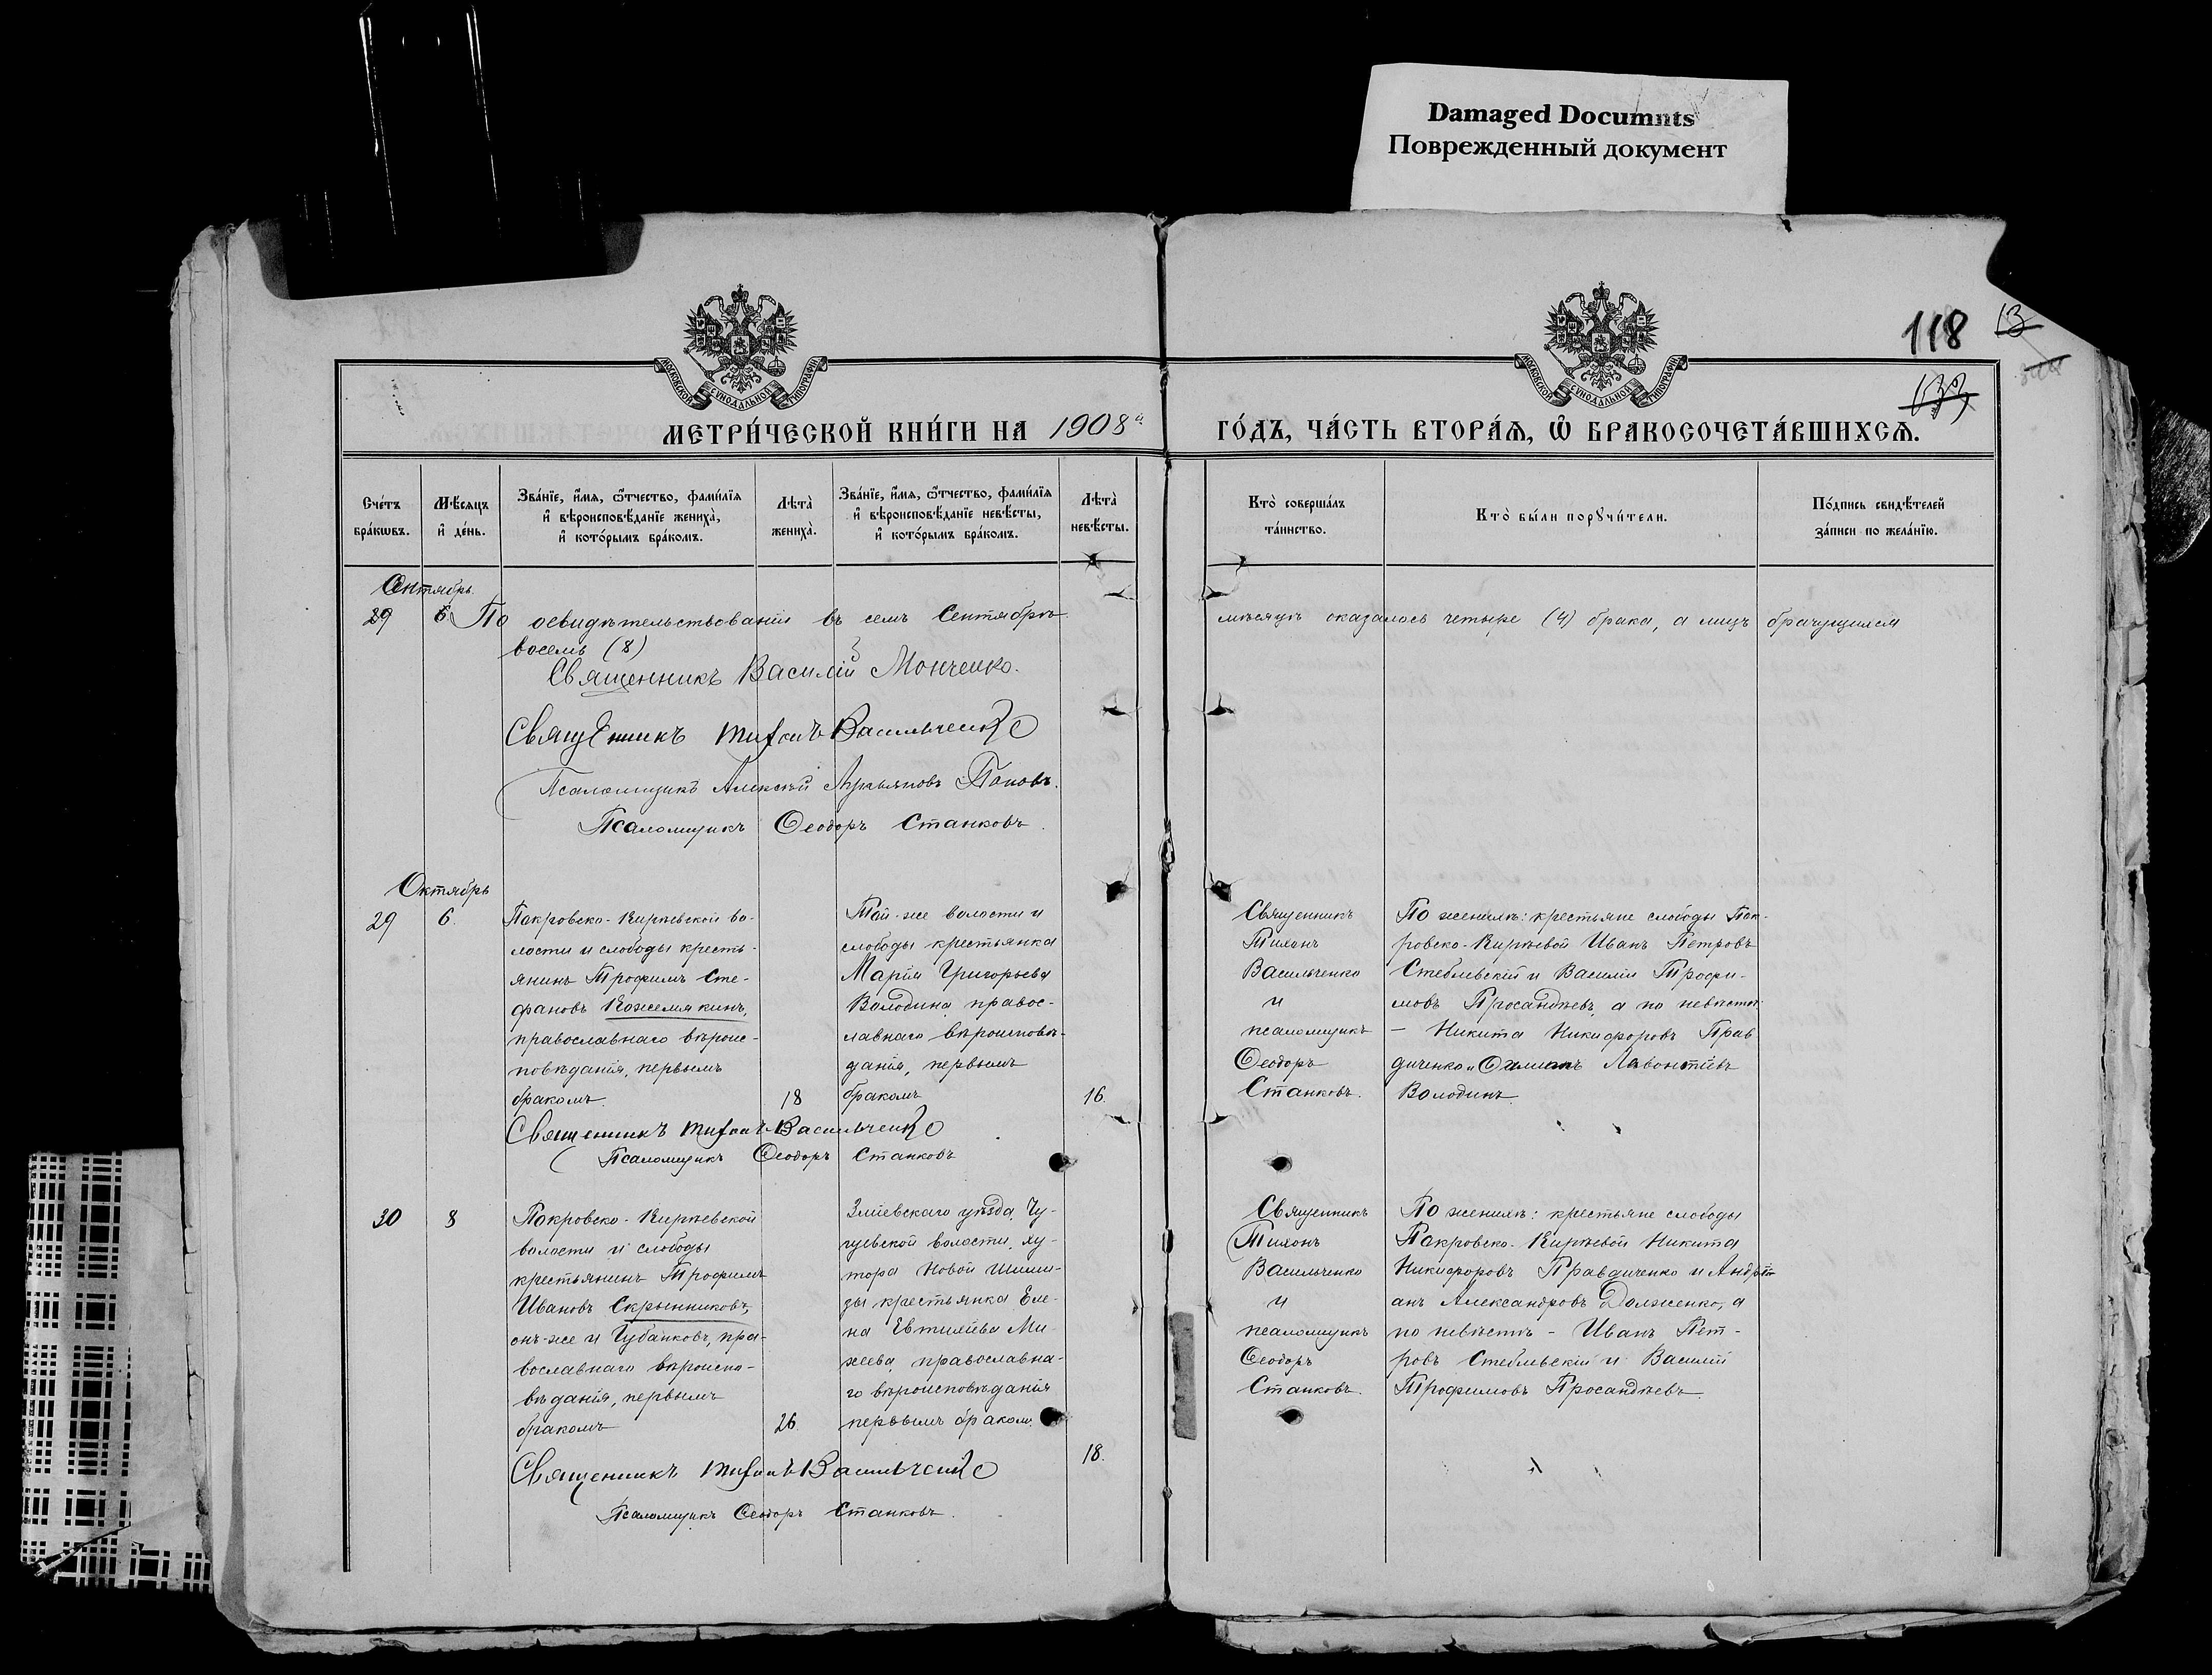 Damaged Documnts
Поврежденный документ
118 13
133
МОСКОВСКОЙ СѴНОДАЛЬНОЙ ТИПОГРАФІИ
МОСКОВСКОЙ СѴНОДАЛЬНОЙ ТИПОГРАФІИ
МЕТРИ́ЧЕСКОЙ КНИ́ГИ НА 1908й ГО́ДЪ, ЧА́СТЬ ВТОРА́Ѧ, Ѽ БРАКОСОЧЕТА́ВШИХСѦ.
Сче́тъ
бра́кѡвъ.
Мѣ́сяцъ
и҆ де́нь.
Зва́нїе, и҆́мѧ, ѻ҆́тчество, фами́лїѧ
и҆ вѣроисповѣ́данїе жениха̀,
и҆ кото́рымъ бра́комъ.
Лѣта̀
жениха̀.
Зва́нїе, и҆́мѧ, ѻ҆́тчество, фами́лїѧ
и҆ вѣроисповѣ́данїе невѣ́сты,
и҆ кото́рымъ бра́комъ.
Лѣта̀
невѣ́сты.
Кто̀ соверша́лъ
та́инство.
Кто̀ бы́ли порꙋчи́тели.
По́дпись свидѣ́телей
за́писи по жела́нїю.
Октябрь
29 6 По освидѣтельствованіи въ семъ Сентябрѣ мѣсяцѣ оказалось четыре (4) брака, а лицъ брачущихся
восемь (8)
Священникъ Василій Монченко.
Священникъ Тихонъ Васильченко
Псаломщикъ Алексѣй Поповъ.
Псаломщикъ Ѳеодоръ Станковъ.
Октябрь
29 6.
Покровско-Кирѣевской во-
лости и слободы кресть-
янинъ Трофимъ Сте-
фановъ Кожемякинъ,
православнаго вѣроис-
повѣданія, первымъ
бракомъ.
18
Той-же волости и
слободы крестьянка
Марія Григорьева
Володина, правос-
лавнаго вѣроисповѣ-
данія, первымъ
бракомъ
16.
Священникъ
Тихонъ
Васильченко
и
псаломщикъ
Ѳеодоръ
Станковъ.
По женихѣ: крестьяне слободы Пок-
ровско-Кирѣевой Иванъ Петровъ
Стеблевскій и Василій Трофи-
мовъ Просандѣевъ, а по невѣстѣ:
– Никита Никифоровъ Прав
диченко и Лавонтіевъ
Володинъ
Священникъ Тихонъ Васильченко
Псаломщикъ Ѳеодоръ Станковъ
30 8
Покровско-Кирѣевской
волости и слободы
крестьянинъ Трофимъ
Ивановъ Скрынниковъ,
онъ-же и Чубанковъ, пра-
вославнаго вѣроиспо-
вѣданія, первымъ
бракомъ
26
Зміевскаго уѣзда, Чу-
гуевской волости, ху-
тора Новой
крестьянка Еле-
на Евтихіева Ми-
хеева, православна-
го вѣроисповѣданія
первымъ бракомъ.
18.
Священникъ
Тихонъ
Васильченко
и
псаломщикъ
Ѳеодоръ
Станковъ.
По женихѣ: крестьяне слободы
Покровско-Кирѣевой Никита
Никифоровъ Правдиченко и Андрі-
анъ Александровъ Долженко, а
по невѣстѣ – Иванъ Пет-
ровъ Стеблевскій и Василій
Трофимовъ Просандѣевъ
Священникъ Тихонъ Васильченко
Псаломщикъ Ѳеодоръ Станковъ.